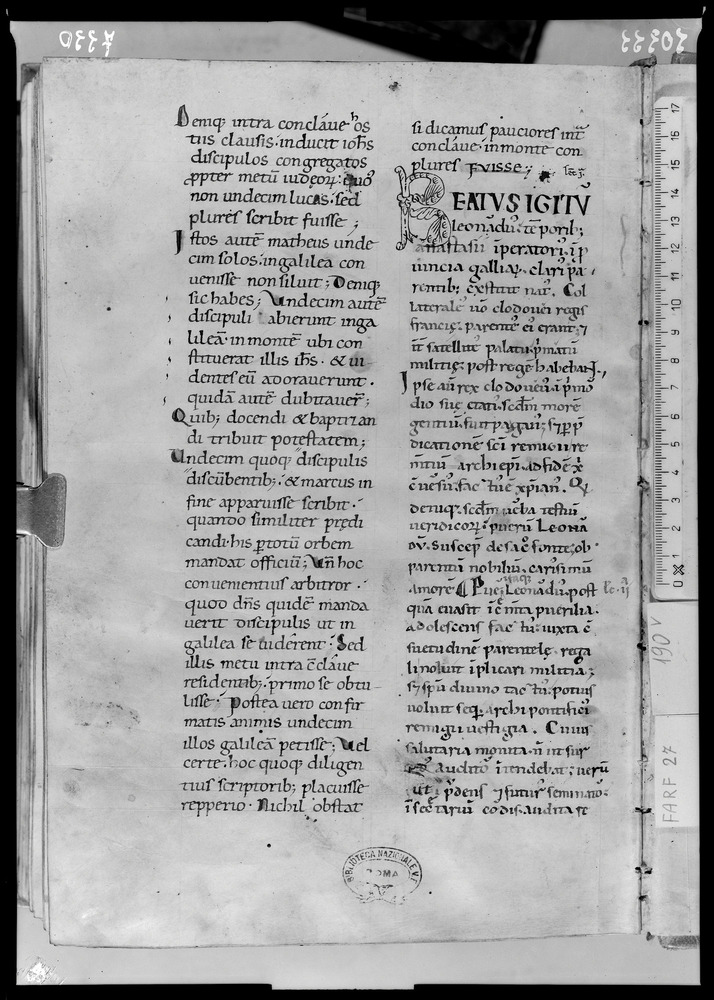 Deniq; intra concláue hos
tiis clausis. inducit ioħs
discipulos congregatos
ꝓpter metū iudeoꝝ: quo
non undecim lucas. sed
plures scribit fuisse;
Istos autē matheus unde
cim solos. ingalilea con
uenisse non siluit; Deniq;
sic habes; Undecim autē
discipuli abierunt inga
lileā. in montē ubi con
stituerat illis iħs. & ui
dentes eū adorauerunt.
quidā autē dubitauer̄;
Quib; docendi & baptizan
di tribuit potestatem;
Undecim quoq; discipulis
discūbentib;. & marcus in
fine apparuisse scribit.
quando similiter predi
candi. his ꝑ totū orbem
mandat officiū; Vn̄ hoc
conuenientius arbitror.
quod dn̄s quidē manda
uerit discipulis ut in
galilea se uiderent. Sed
illis metu intra cclaue
residentib;. primo se obtu
lisse. Postea uero confir
matis animis undecim
illos galileā petisse; Vel
certe. hoc quoq; diligen
tius scriptorib; placuisse
repperio. Nichil obstat
si dicamus pauciores int̄
conclaue. inmonte con
plures FVISSE;
BEATVS IGITVR
leonadū. te porib;
anastasii īperatori. ī p
uincia galliaꝝ. clari pa
rentib; extitit nat. Col
laterale uō clodouei regis
francie. parente ei erant. ⁊
īt satellite palatii. pmatū
militie. post regē habebat.
Ipse aū rex clodoueū. ī pmo
dio sue etati. scdm morē
gentiū. fuit paganꝰ. ⁊ ꝑ p
dicationē sc̄i remigii re
mtiū archi epi. ad fidē x
uersū. fac tū ē xpian. Q
deniq. scdm uerba testiū
ueridicoꝝ. puerū Leona
dū. suscep de sac̄ fonte. ob
parentū nobiliū. carisimū
amorē Puer Leonadū. post
quā euasit īe inta puerilia.
adolescens fac tū. iuxta c
suetudinē parentele. rega
li noluit īplicari militia.
⁊ spū diuino tac tū. potius
uoluit seq archi pontifici
remigii uestigia. Cuius
salutaria monita. n̄ ut sur
auditō ītendebat; uerū
ut pdens ⁊ futur seminator
ī sec̄tariū cordis. audita re
BIBLIOTECA NAZIONALE V.E.
ROMA
190 v
FARF 27